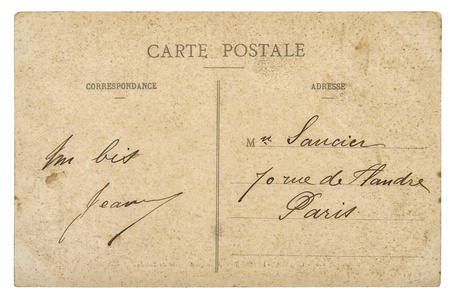 CARTE POSTALE
CORRESPONDANCE
ADRESSE
Un bis
Jean
Mr Saucier
70 rue de Flandre
Paris